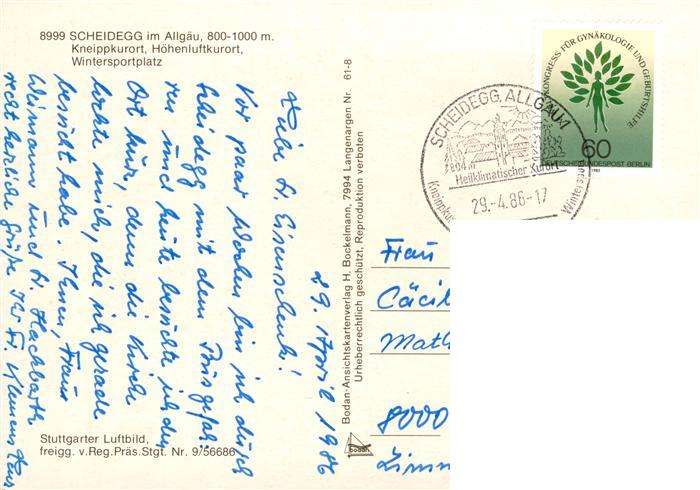 8999 SCHEIDEGG im Allgäu, 800-1000 m.
Kneippkurort, Höhenluftkurort,
Wintersportplatz
29. April 1986
Liebe Fr. Eisenschenk!
Vor paar Wochen bin ich durch
Scheidegg mit dem Bus gefah-
ren und heute besuchte ich den
Ort kurz, denn die Kirche
lockte mich, die ich gerade
besucht habe. Ihnen, Frau
Weimann und Fr. Hackbarth
recht herzliche Grüße Ihr Fr. Klemens
Stuttgarter Luftbild,
freigg. v.Reg.Präs.Stgt. Nr. 9/56686
Bodan-Ansichtskartenverlag H. Bockelmann, 7994 Langenargen Nr. 61-8
Urheberrechtlich geschützt, Reproduktion verboten
bodan
SCHEIDEGG, ALLGÄU 1
Heilklimatischer Kurort
Kneippkur
Wintersport
29.-4.86-17
KONGRESS FÜR GYNÄKOLOGIE UND GEBURTSHILFE
60
DEUTSCHE BUNDESPOST BERLIN
1985
Frau
Cäcil
Math
8000
Zimm